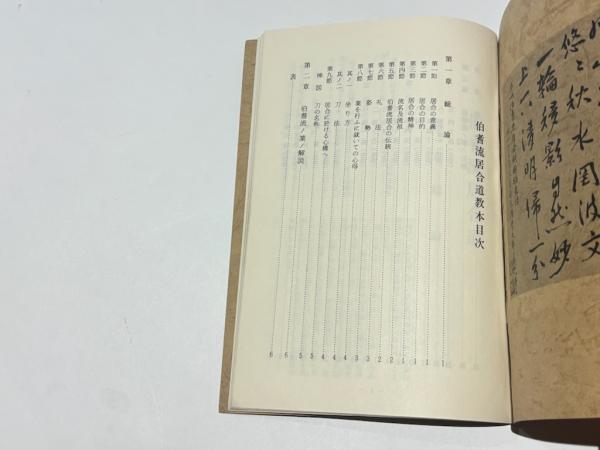 悠々秋水罔波文
一輪積影自然妙
上下清明帰一分
伯耆流居合道教本目次
第一章 統論 1
第一節 居合の意義 1
第二節 居合の目的 1
第三節 居合の精神 1
第四節 流名及流祖 1
第五節 伯耆流居合の伝統 2
第六節 礼法 2
第七節 姿勢 3
第八節 業を行ふに就いての心得 3
其ノ一 坐り方 4
其ノ二 刀法 4
第九節 居合に於ける心構へ 4
挿図 刀の名称 5
第二章 伯耆流ノ業ノ解説 6
表 6